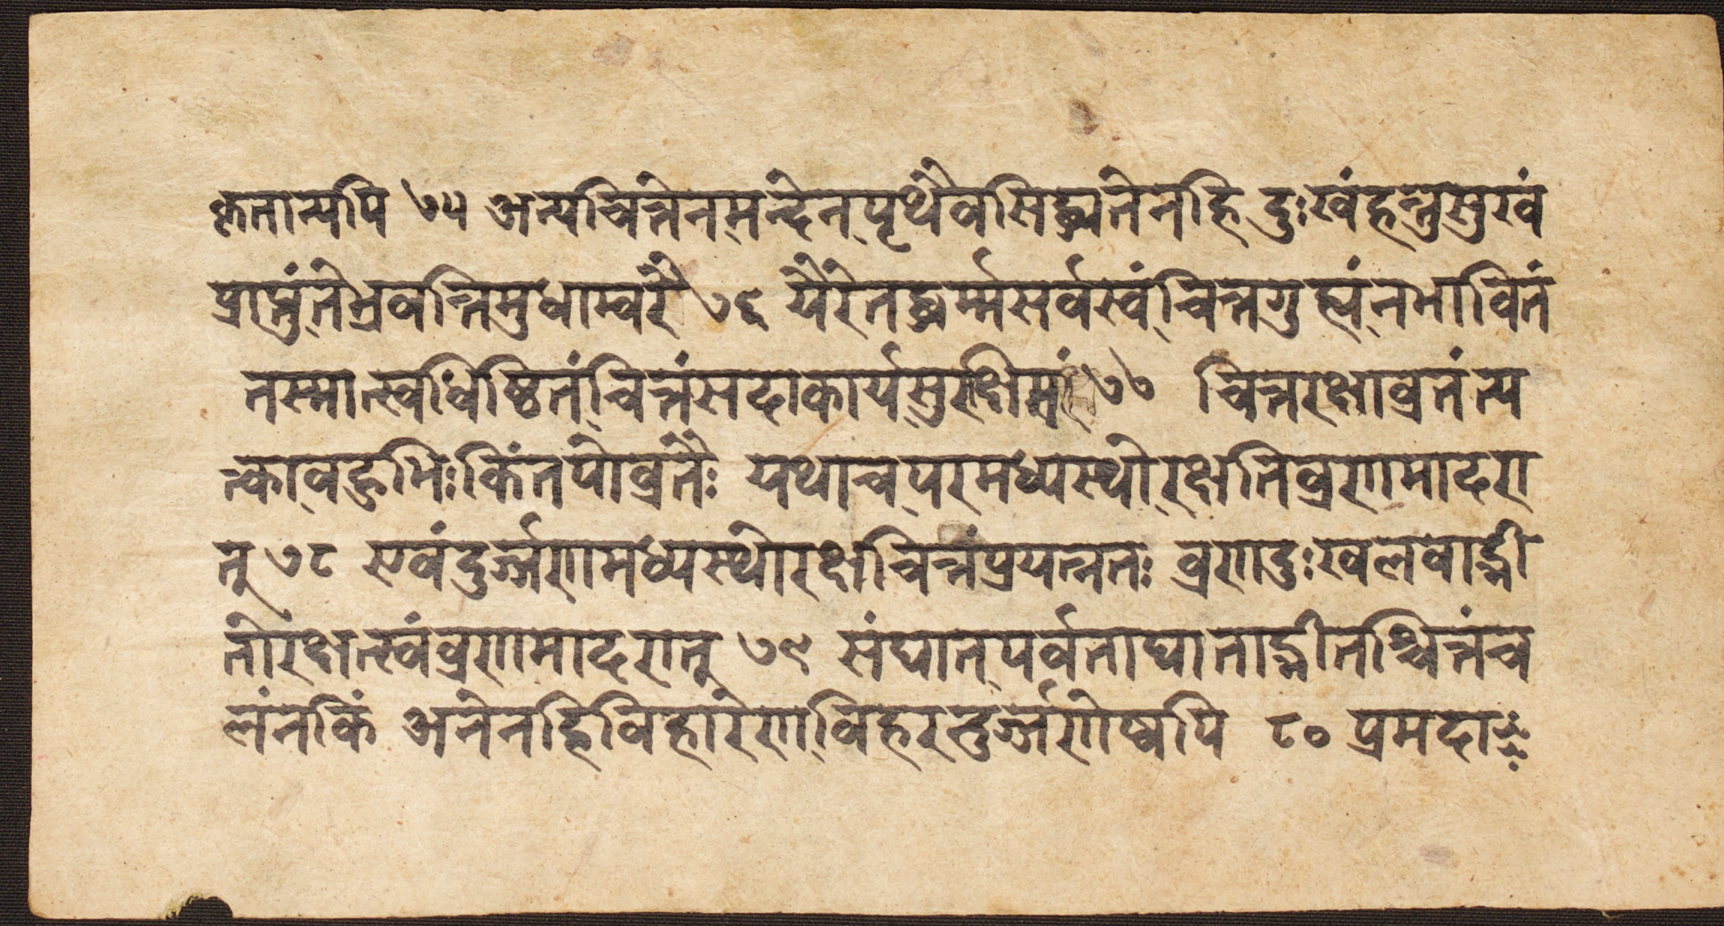 कृतान्यपि ७५ अन्यचित्तेन मन्देन पृथैव सिद्ध्यतेनहि दुःखंहन्तुसुखं
प्राप्तुंतेभ्रवन्तिमुधाम्वरै ७६ यैरेतद्धर्म्मसर्वस्वं चित्तगुह्यं नभावितं
तस्मात्स्वधिष्ठितं चित्तंसदाकार्य सुरक्षिमं ७७ चित्तरक्षाव्रतंत्य
त्का वहुभिः किंतपोव्रतैः यथाच परमध्यस्थोरक्षतिव्रणमादरा
त् ७८ एवंदुर्ज्जणमध्यस्थोरक्षचित्तंप्रयत्नतः व्रणदुःखलवाद्भी
तोरक्षत्स्वंव्रणमादरात् ७९ संघात पर्वताघाताद्भीतश्चित्तंच
लंनकिं अनेनहिविहारेण विहरन्दुर्ज्जणेष्वपि ८० प्रमदा